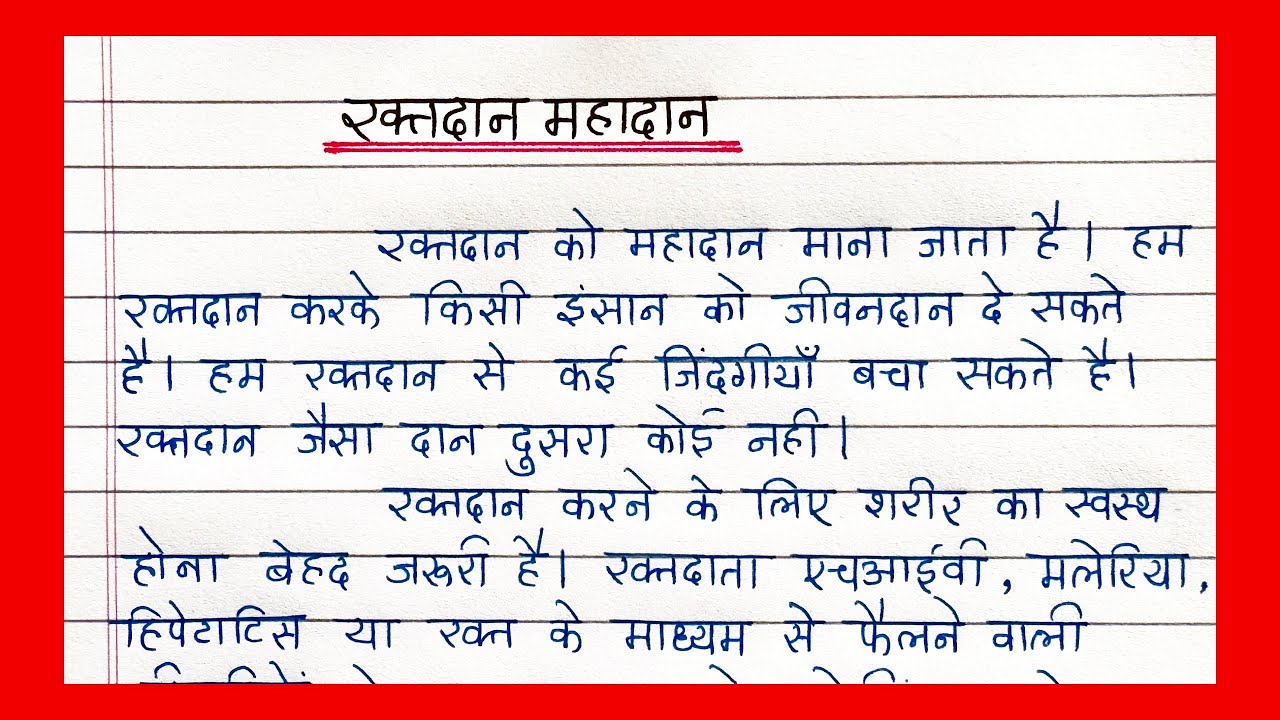 रक्तदान महादान
रक्तदान को महादान माना जाता है। हम
रक्तदान करके किसी इंसान को जीवनदान दे सकते
है। हम रक्तदान से कई जिंदगीयाँ बचा सकते है।
रक्तदान जैसा दान दुसरा कोई नही।
रक्तदान करने के लिए शरीर का स्वस्थ
होना बेहद जरूरी है। रक्तदाता एचआईवी, मलेरिया,
हिपेटाटिस या रक्त के माध्यम से फैलने वाली